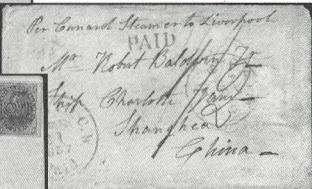 Per Cunard Steamer to Liverpool
PAID
Mr. Robert Baldwin Jr
Ship Charlotte
Shanghea
China